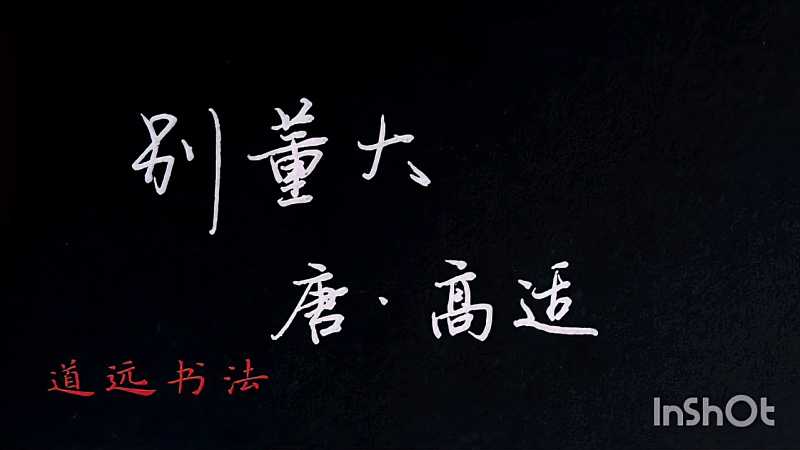 别董大
唐·高适
道远书法
InShOt